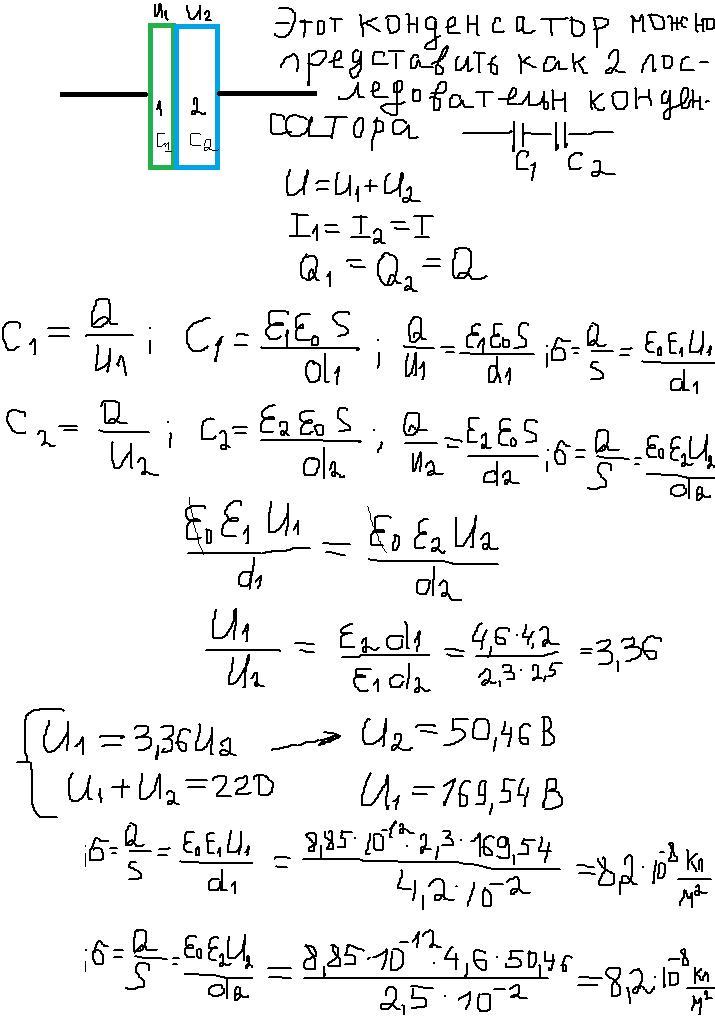 U₁ U₂
Этот конденсатор можно
представить как 2 пос-
ледовательн конден-
сатора
1 2
C₁ C₂
C₁ C₂
U=U₁+U₂
I₁=I₂=I
Q₁=Q₂=Q
C₁=Q/U₁; C₁=ε₁ε₀S/d₁; Q/U₁=ε₁ε₀S/d₁; б=Q/S=ε₀ε₁U₁/d₁
C₂=Q/U₂; C₂=ε₂ε₀S/d₂; Q/U₂=ε₂ε₀S/d₂; б=Q/S=ε₀ε₂U₂/d₂
ε₀ε₁U₁/d₁=ε₀ε₂U₂/d₂
U₁/U₂=ε₂d₁/ε₁d₂=4,6·4,2/2,3·2,5=3,36
U₁=3,36U₂ → U₂=50,46 В
U₁+U₂=220 U₁=169,54 В
; б=Q/S=ε₀ε₁U₁/d₁=8,85·10⁻¹²·2,3·169,54/4,2·10⁻²=8,2·10⁻⁸ Кл/м²
; б=Q/S=ε₀ε₂U₂/d₂=8,85·10⁻¹²·4,6·50,46/2,5·10⁻²=8,2·10⁻⁸ Кл/м²